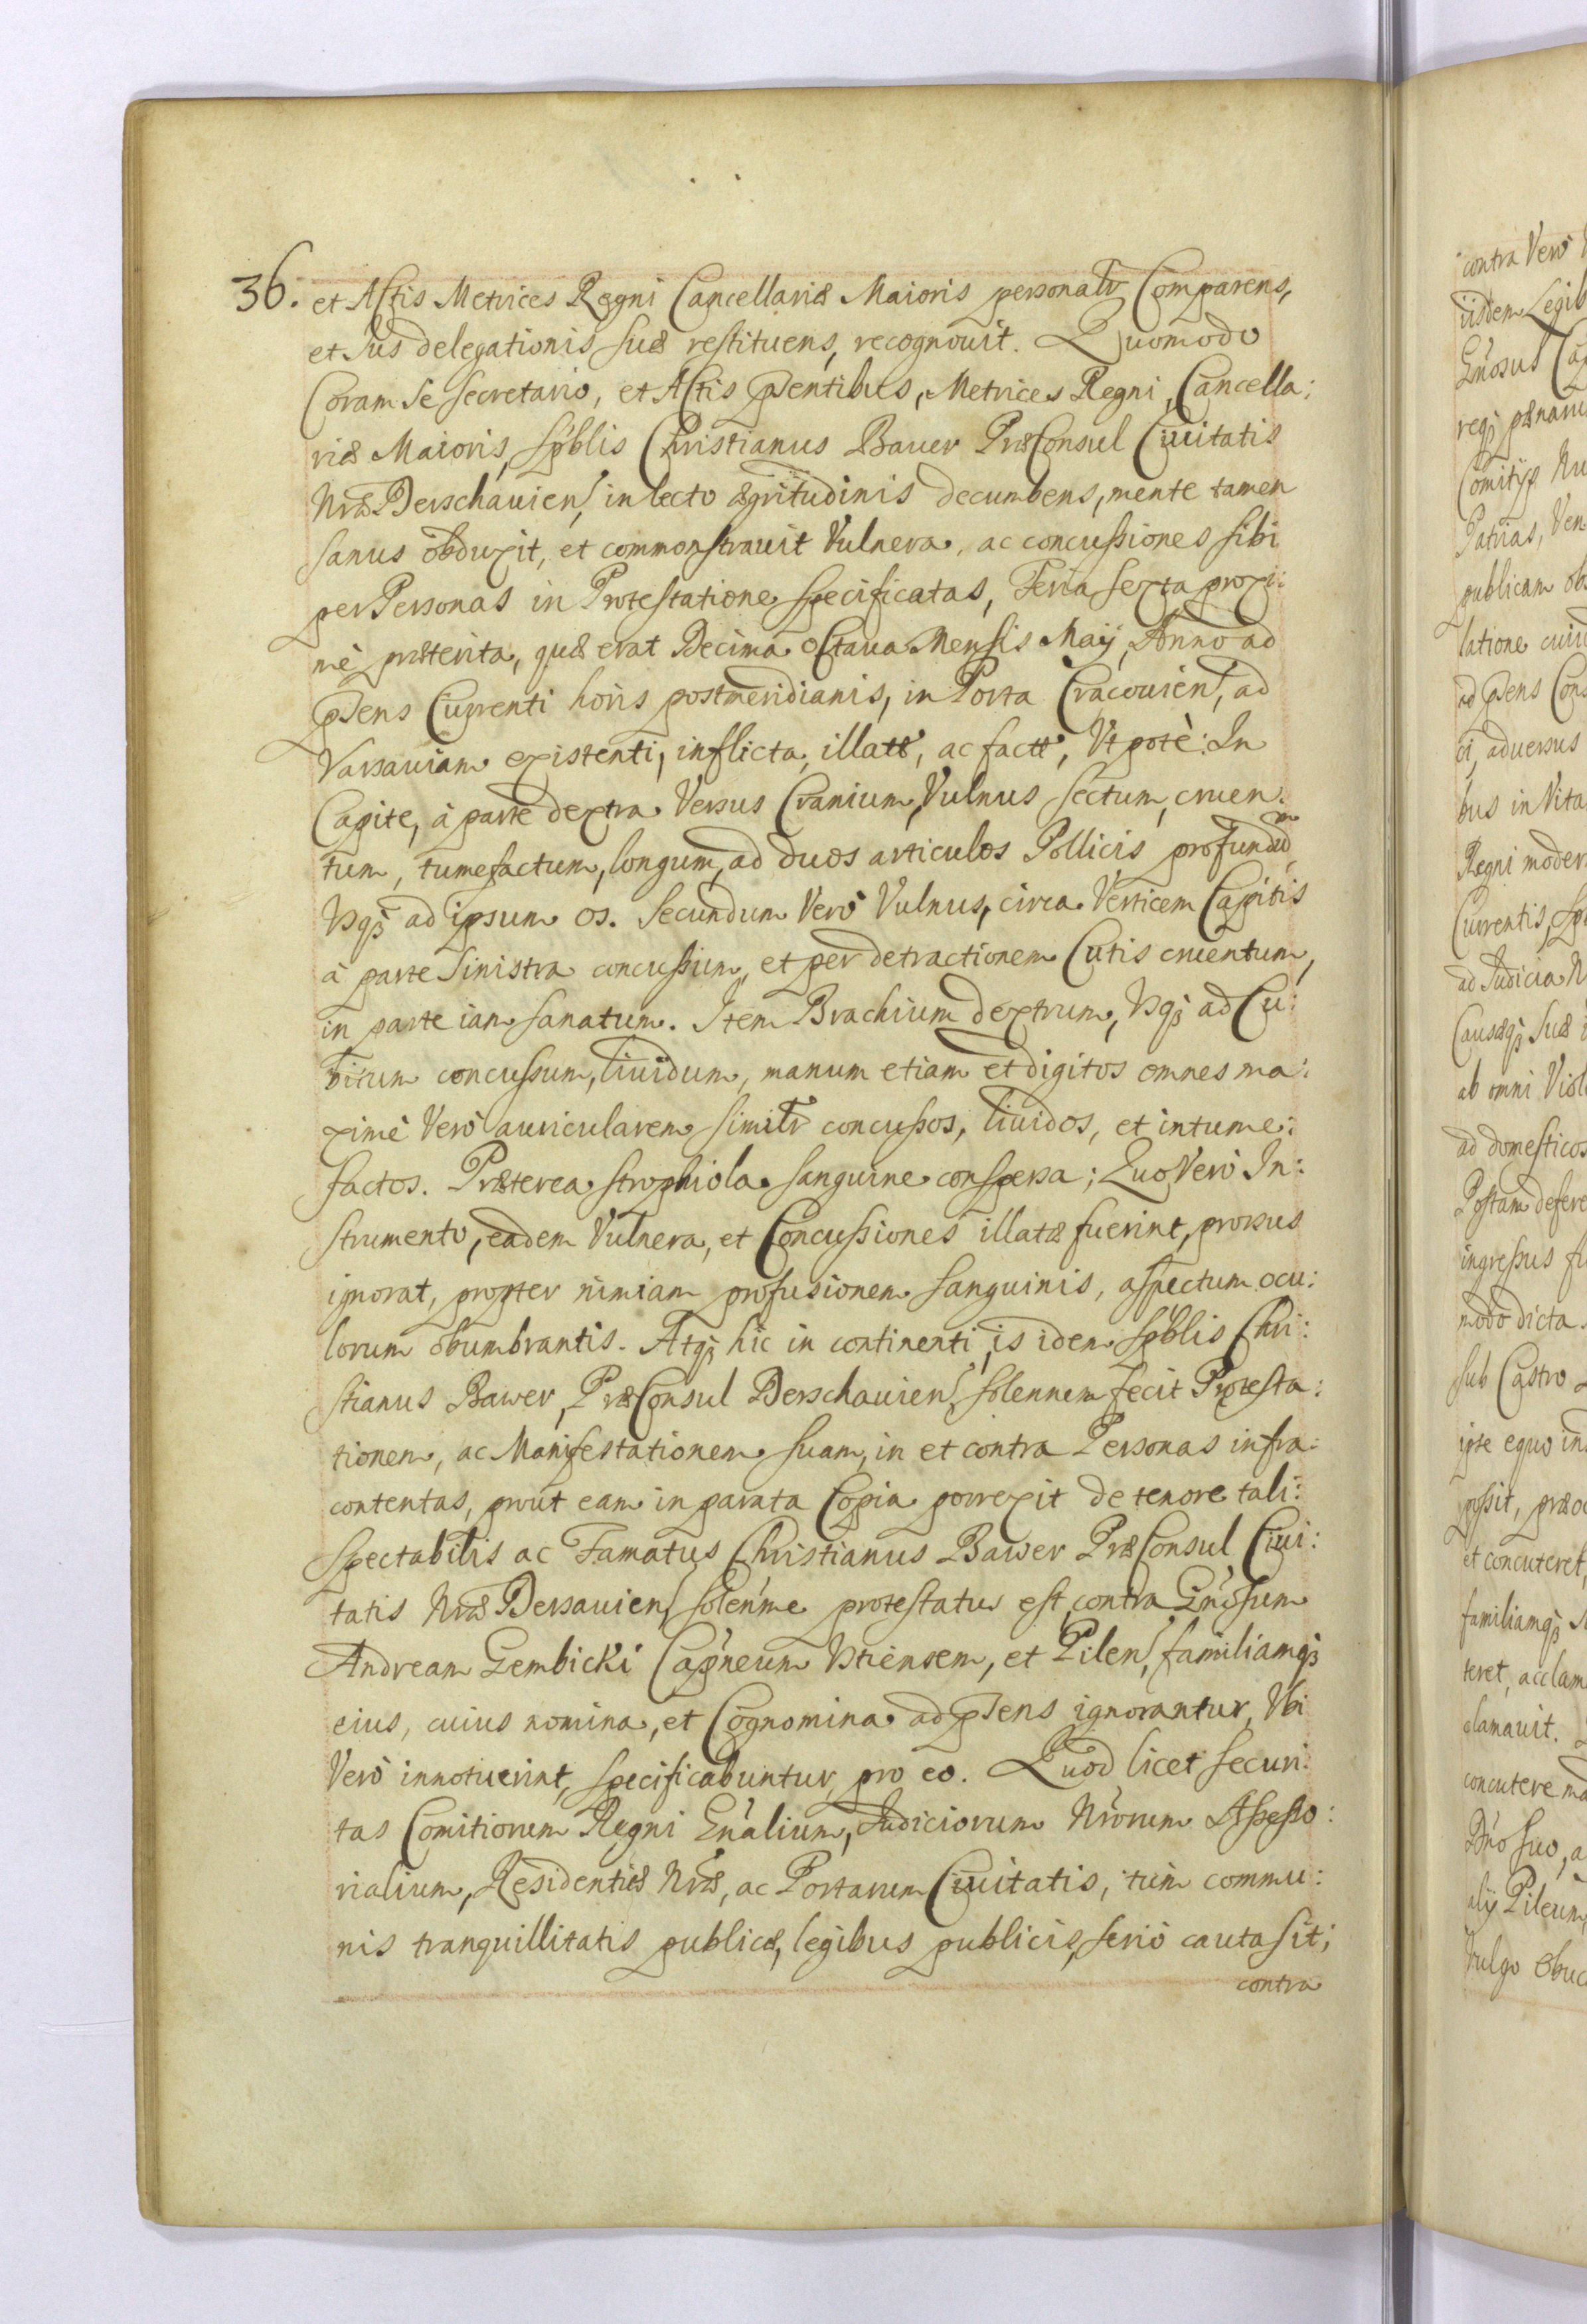 36. et Actis Metrices Regni Cancellariæ Maioris personalr Comparens,
et Jus delegationis suæ restituens, recognouit. Quomodo
Coram se secretario, et Actis pntibus, Metrices Regni, Cancella:
riæ Maioris, Spblis Christianus Bauer PræConsul Ciuitatis
Nræ Derschauien, in lecto ægritudinis decumbens, mente tamen
sanus obduxit, et commonstrauit Vulnera, ac concussiones sibi
per Personas in Protestatione specificatas, Feria sexta proxi:
mè præterita, quæ erat Decima octaua Mensis Maÿ, Anno ad
pns Currenti horis postmeridianis, in Porta Cracouien, ad
Varsauiam existenti, inflicta, illata, ac facta, Vt potè: In
Capite, à parte dextra Versus Cranium, Vulnus sectum, cruen:
tum, tumefactum, longum, ad duos articulos Pollicis profundum,
Vsq; ad ipsum os. Secundum Verò Vulnus, circa Verticem Capitis
à parte Sinistra concussum, et per detractionem Cutis cruentum,
in parte iam sanatum. Item Brachium dextrum, Vsq; ad Cu:
bitum concussum, liuidum, manum etiam et digitos omnes ma:
ximè Verò auricularem similr concussos, liuidos, et intume:
factos. Præterea strophiola sanguine conspersa; Quo Verò In:
strumento, eadem Vulnera, et Concussiones illatæ fuerint, prorsus
ignorat, propter nimiam profusionem sanguinis, aspectum ocu:
lorum obumbrantis. Atq; hic in continenti, is idem Spblis Chri:
stianus Bawer, PræConsul Derschauien, solennem fecit Protesta:
tionem, ac Manifestationem suam, in et contra Personas infra:
contentas, prout eam in parata Copia porrexit de tenore tali:
Spectabilis ac Famatus Christianus Bawer PræConsul Ciui:
tatis Nræ Dersauien, solenme protestatur est contra Gnosum
Andream Gembicki Capneum Vstiensem, et Pilen, familiamq;
eius, cuius nomina, et Cognomina ad pns ignorantur, Vbi
Verò innotuerint, specificabuntur, pro eo. Quod licet securi:
tas Comitiorum Regni Gnalium, Judiciorum Nrorum Assesso:
rialium, Residentiæ Nræ, ac Portarum Ciuitatis, tùm commu:
nis tranquillitatis publicæ, legibus publicis, seriò cauta sit;
contra
contra Verò
iisdem Legib
Gnosus Ca
regj pænam
Comitÿs Nu
Patrias, Ven
publicam ob
latione cuiu
ad pns Cons
ci, aduersus
bus in Vita
Regni moder
Currentis, Sp
ad Judicia N
Causæq; suæ
ab omni Viol
ad domesticos
Postam defere
ingressus fu
modo dicta
sub Castro
ipse equo in
possit, præo
et concuteret,
familiamq; s
teret, acclam
clamauit.
concutere ma
Dno suo, a
alÿ Pileum,
Vulgo Obuc